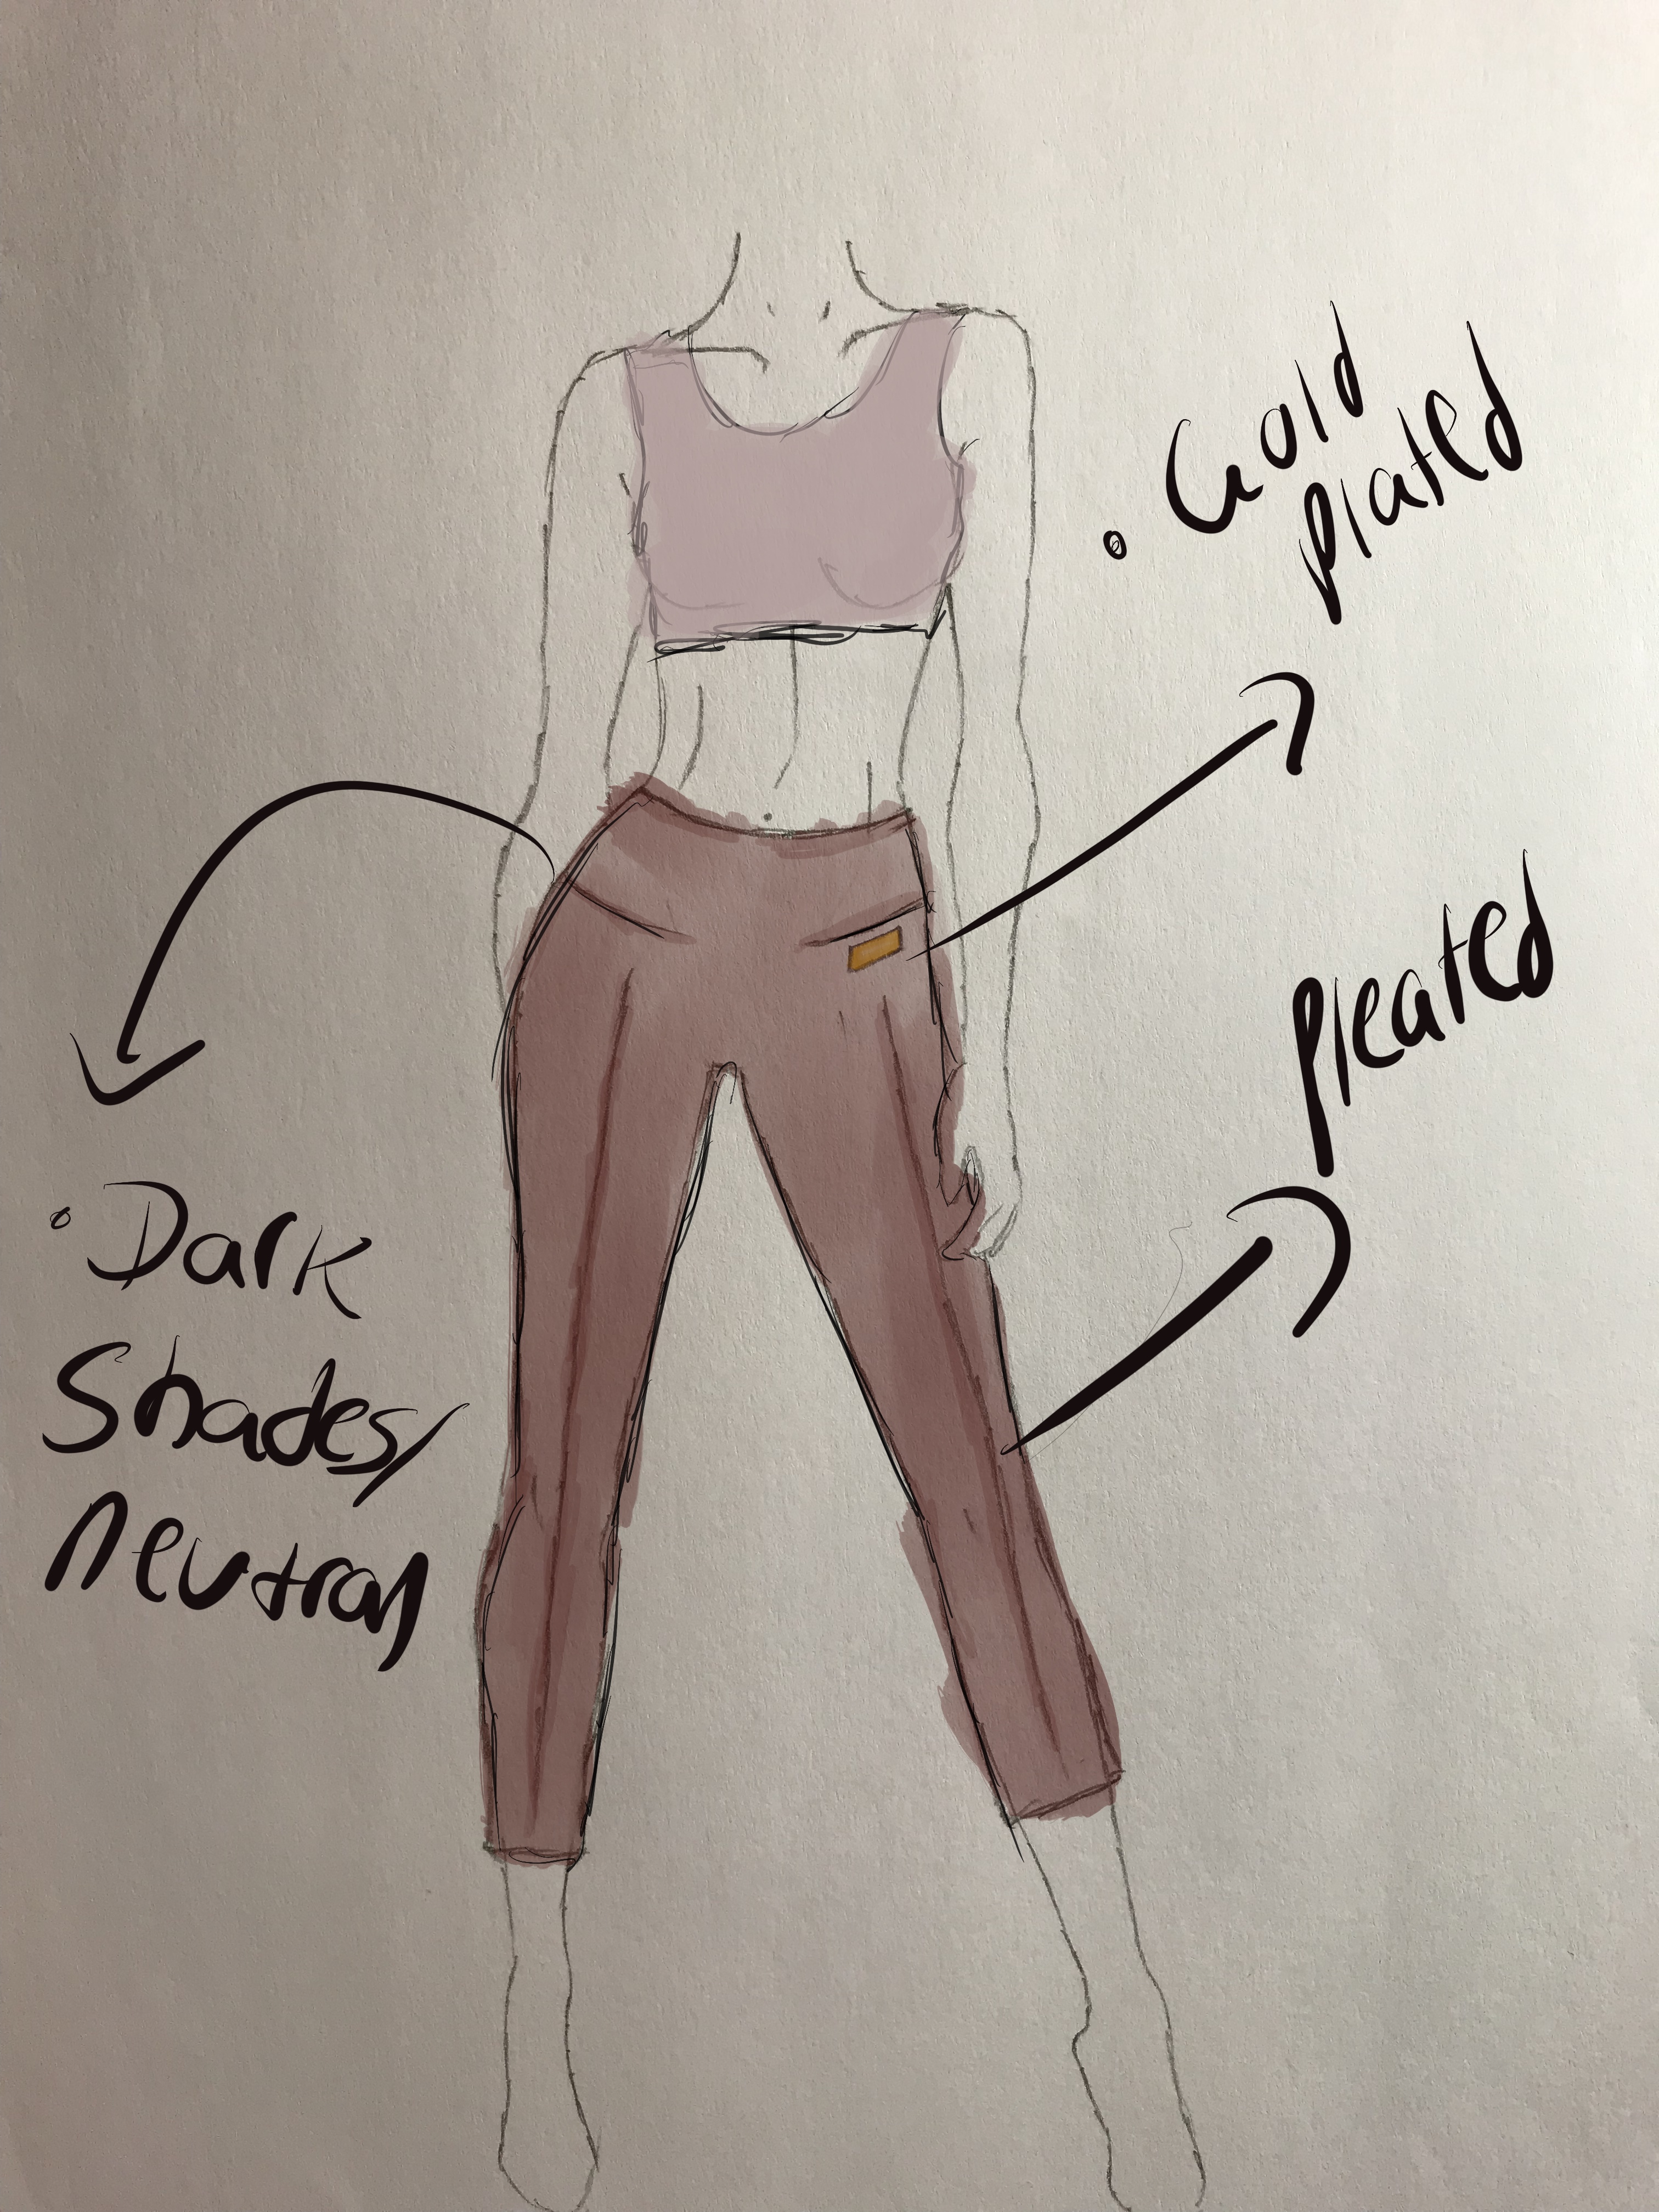 • Gold
plated
pleated
• Dark
Shades/
neutral